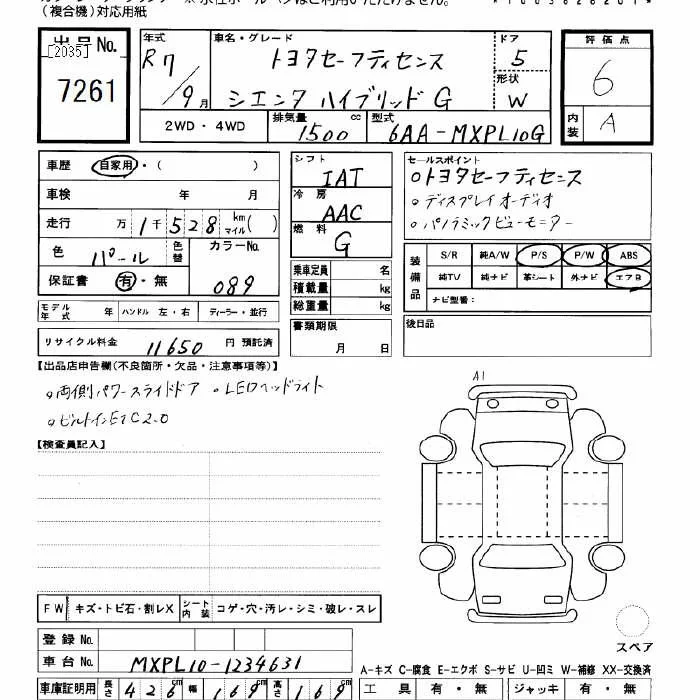 (複合機)対応用紙
出品No.
[2035]
7261
年式
R7/9月
車名・グレード
トヨタセーフティセンス
シエンタ ハイブリッド G
ドア
5
形状
W
評価点
6
内装
A
2WD・4WD
排気量
1500
cc
型式
6AA-MXPL10G
車歴
自家用・( )
車検 年 月
走行 万 1千528 km マイル( )
色
パール
色替
カラーNo.
089
保証書 有・無
モデル年式 年 ハンドル 左・右 ディーラー・並行
リサイクル料金 11650 円 預託済
シフト
IAT
冷房
AAC
燃料
G
乗車定員 名
積載量 kg
総重量 kg
書類期限
月 日
セールスポイント
○トヨタセーフティセンス
○ディスプレイオーディオ
○パノラミックビューモニター
装備品
S/R 純A/W P/S P/W ABS
純TV 純ナビ 革シート 外ナビ エアB
ナビ型番:
後日品
【出品店申告欄(不良箇所・欠品・注意事項等)】
○両側パワースライドドア ○LEDヘッドライト
○ビルトインETC2.0
【検査員記入】
A1
FW キズ・トビ石・割レX シート内装 コゲ・穴・汚レ・シミ・破レ・スレ
登録No.
車台No. MXPL10-1234631
車庫証明用 長さ 426cm 幅 169cm 高さ 169cm
スペア
A-キズ C-腐食 E-エクボ S-サビ U-凹ミ W-補修 XX-交換済
工具 有・無 ジャッキ 有・無